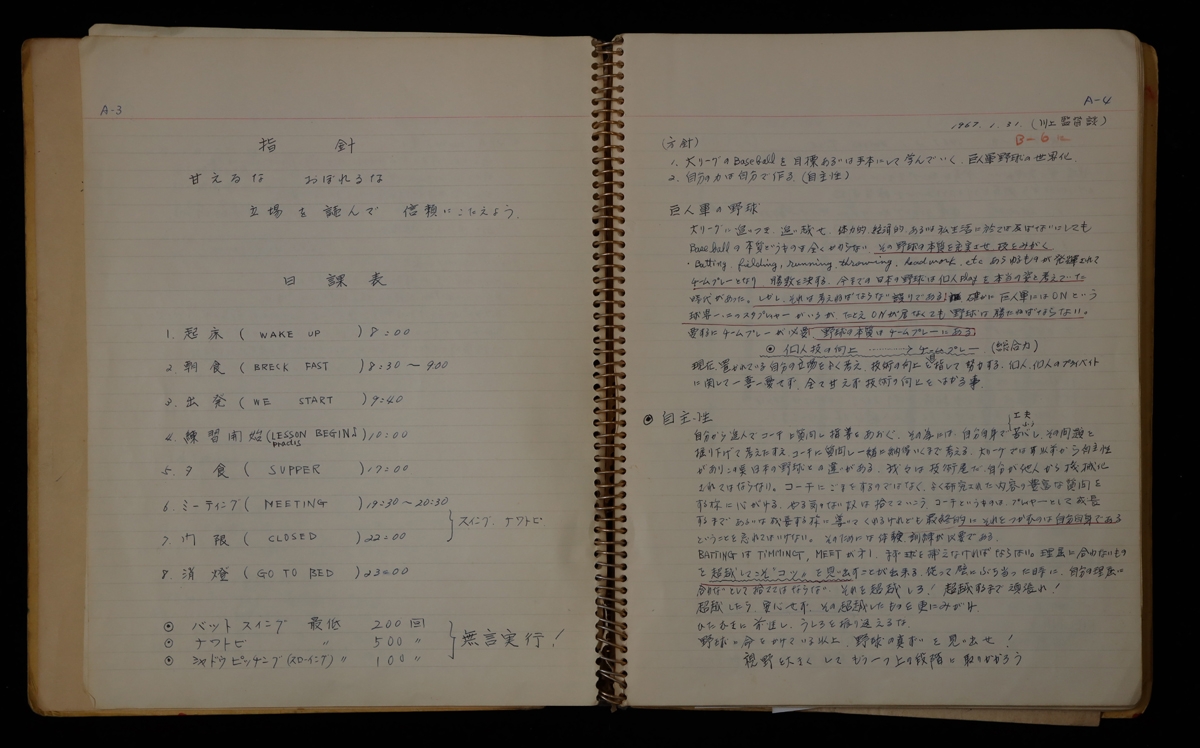 A-3
指針
甘えるな おぼれるな
立場を読んで 信頼にこたえよう.
日課表
1. 起床 ( WAKE UP ) 8:00
2. 朝食 ( BRECK FAST ) 8:30 ~ 900
3. 出発 ( WE START ) 9:40
4. 練習開始 (LESSON BEGIN) 10:00
practis
5. 夕食 ( SUPPER ) 17:00
6. ミーティング ( MEETING ) 19:30~20:30
スイング. ナワトビ
7. 門限 ( CLOSED ) 22:00
8. 消燈 ( GO TO BED ) 23:00
◉ バットスイング 最低 200回
◉ ナワトビ 〃 500 〃
◉ シャドウピッチング (スローイング) 〃 100 〃
無言実行!
A-4
1967. 1. 21. (川上監督談)
B-6に
(方針)
1. 大リーグのBaseballを目標あるいは手本にして学んでいく. 巨人軍野球の世界化.
2. 自分の力は自分で作る. (自主性)
巨人軍の野球
大リーグに追いつき. 追い越せ. 体力的 経済的. あるいは私生活に於ては及ばないにしても
Baseballの本質というものは全くかわらない. その野球の本質を充実させ 技をみがく
・Batting fielding, running, throwing, headwork, etc あらゆるものが発揮されて
チームプレーとなり 勝敗を決する. 今までの日本の野球は個人playを本当の姿と考えていた
時代があった. しかし. それは考えねばならない誤りである! 確かに巨人軍にはONという
球界一. 二のスタープレヤーがいるが. たとえONが居なくても野球は勝たねばならない.
要するにチームプレーが必要. 野球の本質はチームプレーにある
◉ 個人技の向上 ………→ チームプレー (総合力)
現在. 置かれている自分の立場をよく考え. 技術の向上を目指して努力する. 個人. 個人のプライベイト
に関して一喜一憂せず. 全て甘えず技術の向上をはかる事.
◉ 自主性
工夫
自分から進んでコーチに質問し指導をあおぐ. その為には. 自分自身で苦心し その問題を
掘り下げて考えたすえ. コーチに質問し一緒に納得いくまで考える. 大リーグでは 自主性
があり この点日本の野球との違いがある. 我々は技術屋だ. 自分が他人から機械に
されてはならない. コーチにごまをするのではなく. よく研究された内容の豊富な質問を
する様に心がける. やる気のない奴は捨てていこう. コーチというものは. プレヤーとして成長
するまで あるいは成長する様に導いてくれるけれども 最終的に それをつかむのは自分自身である
ということを忘れてはいけない. そのためには体験. 訓練が必要である.
BATTINGはTIMMINGT, MEETが才1. 球を捕えなければならない. 理屈に合わないもの
を超越してこそ"コツ"を見い出すことが出来る. 従って壁にぶち当った時に. 自分の理屈に
合わないとして捨ててはならない. それを超越しろ! 超越するまで頑張れ!
超越したら. 安心せず. その超越したものを更にみがけ.
ひたむきに前進し. うしろを振り返えるな.
野球に命をかけている以上. 野球の真ずいを見い出せ!
視野を大きくして もう一つ上の段階に取りかかろう